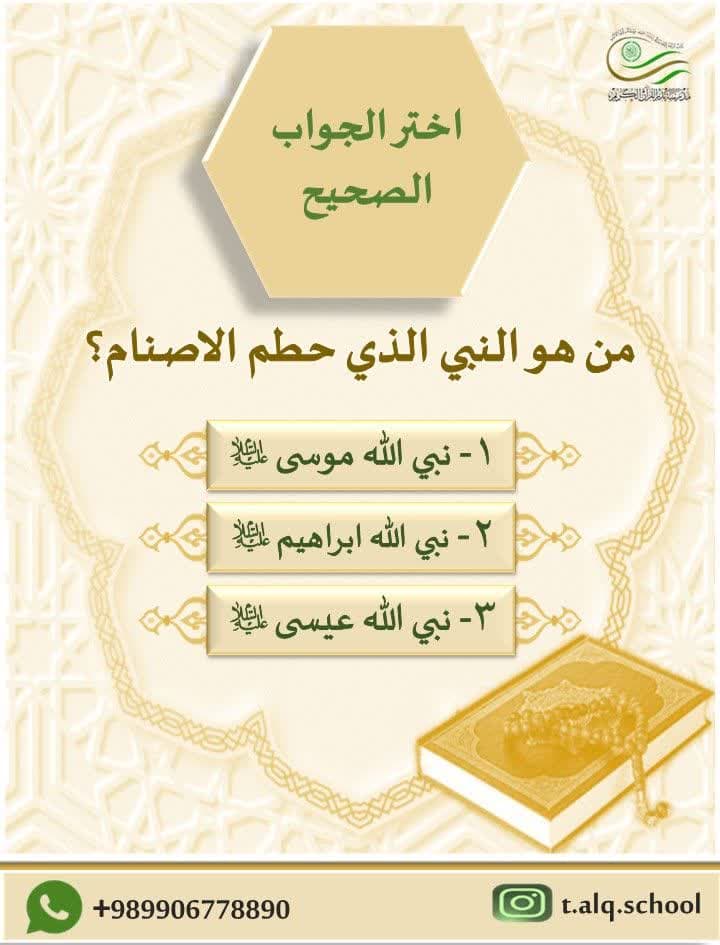 مدرسة تدبر القرآن الكريم
اختر الجواب
الصحيح
من هو النبي الذي حطم الاصنام؟
١- نبي الله موسى عليه السلام
٢- نبي الله ابراهيم عليه السلام
٣- نبي الله عيسى عليه السلام
+989906778890
t.alq.school